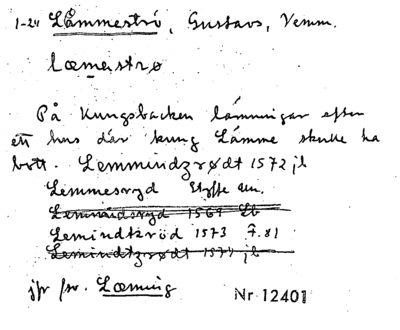 1-24 Lämmeströ, Gustavs, Vemm.
læmerstrø
På Kungsbacken lämningar efter
ett hus där kung Lämme skulle ha
bott. Lemmindzrødt 1572 jb
Lemmesryd Styffe
Lemnidsryd 1569
Lemindtzröd 1573 F. 81
Lemindtzrødt 1574 jb
jfr fsv. Læming
Nr 12401